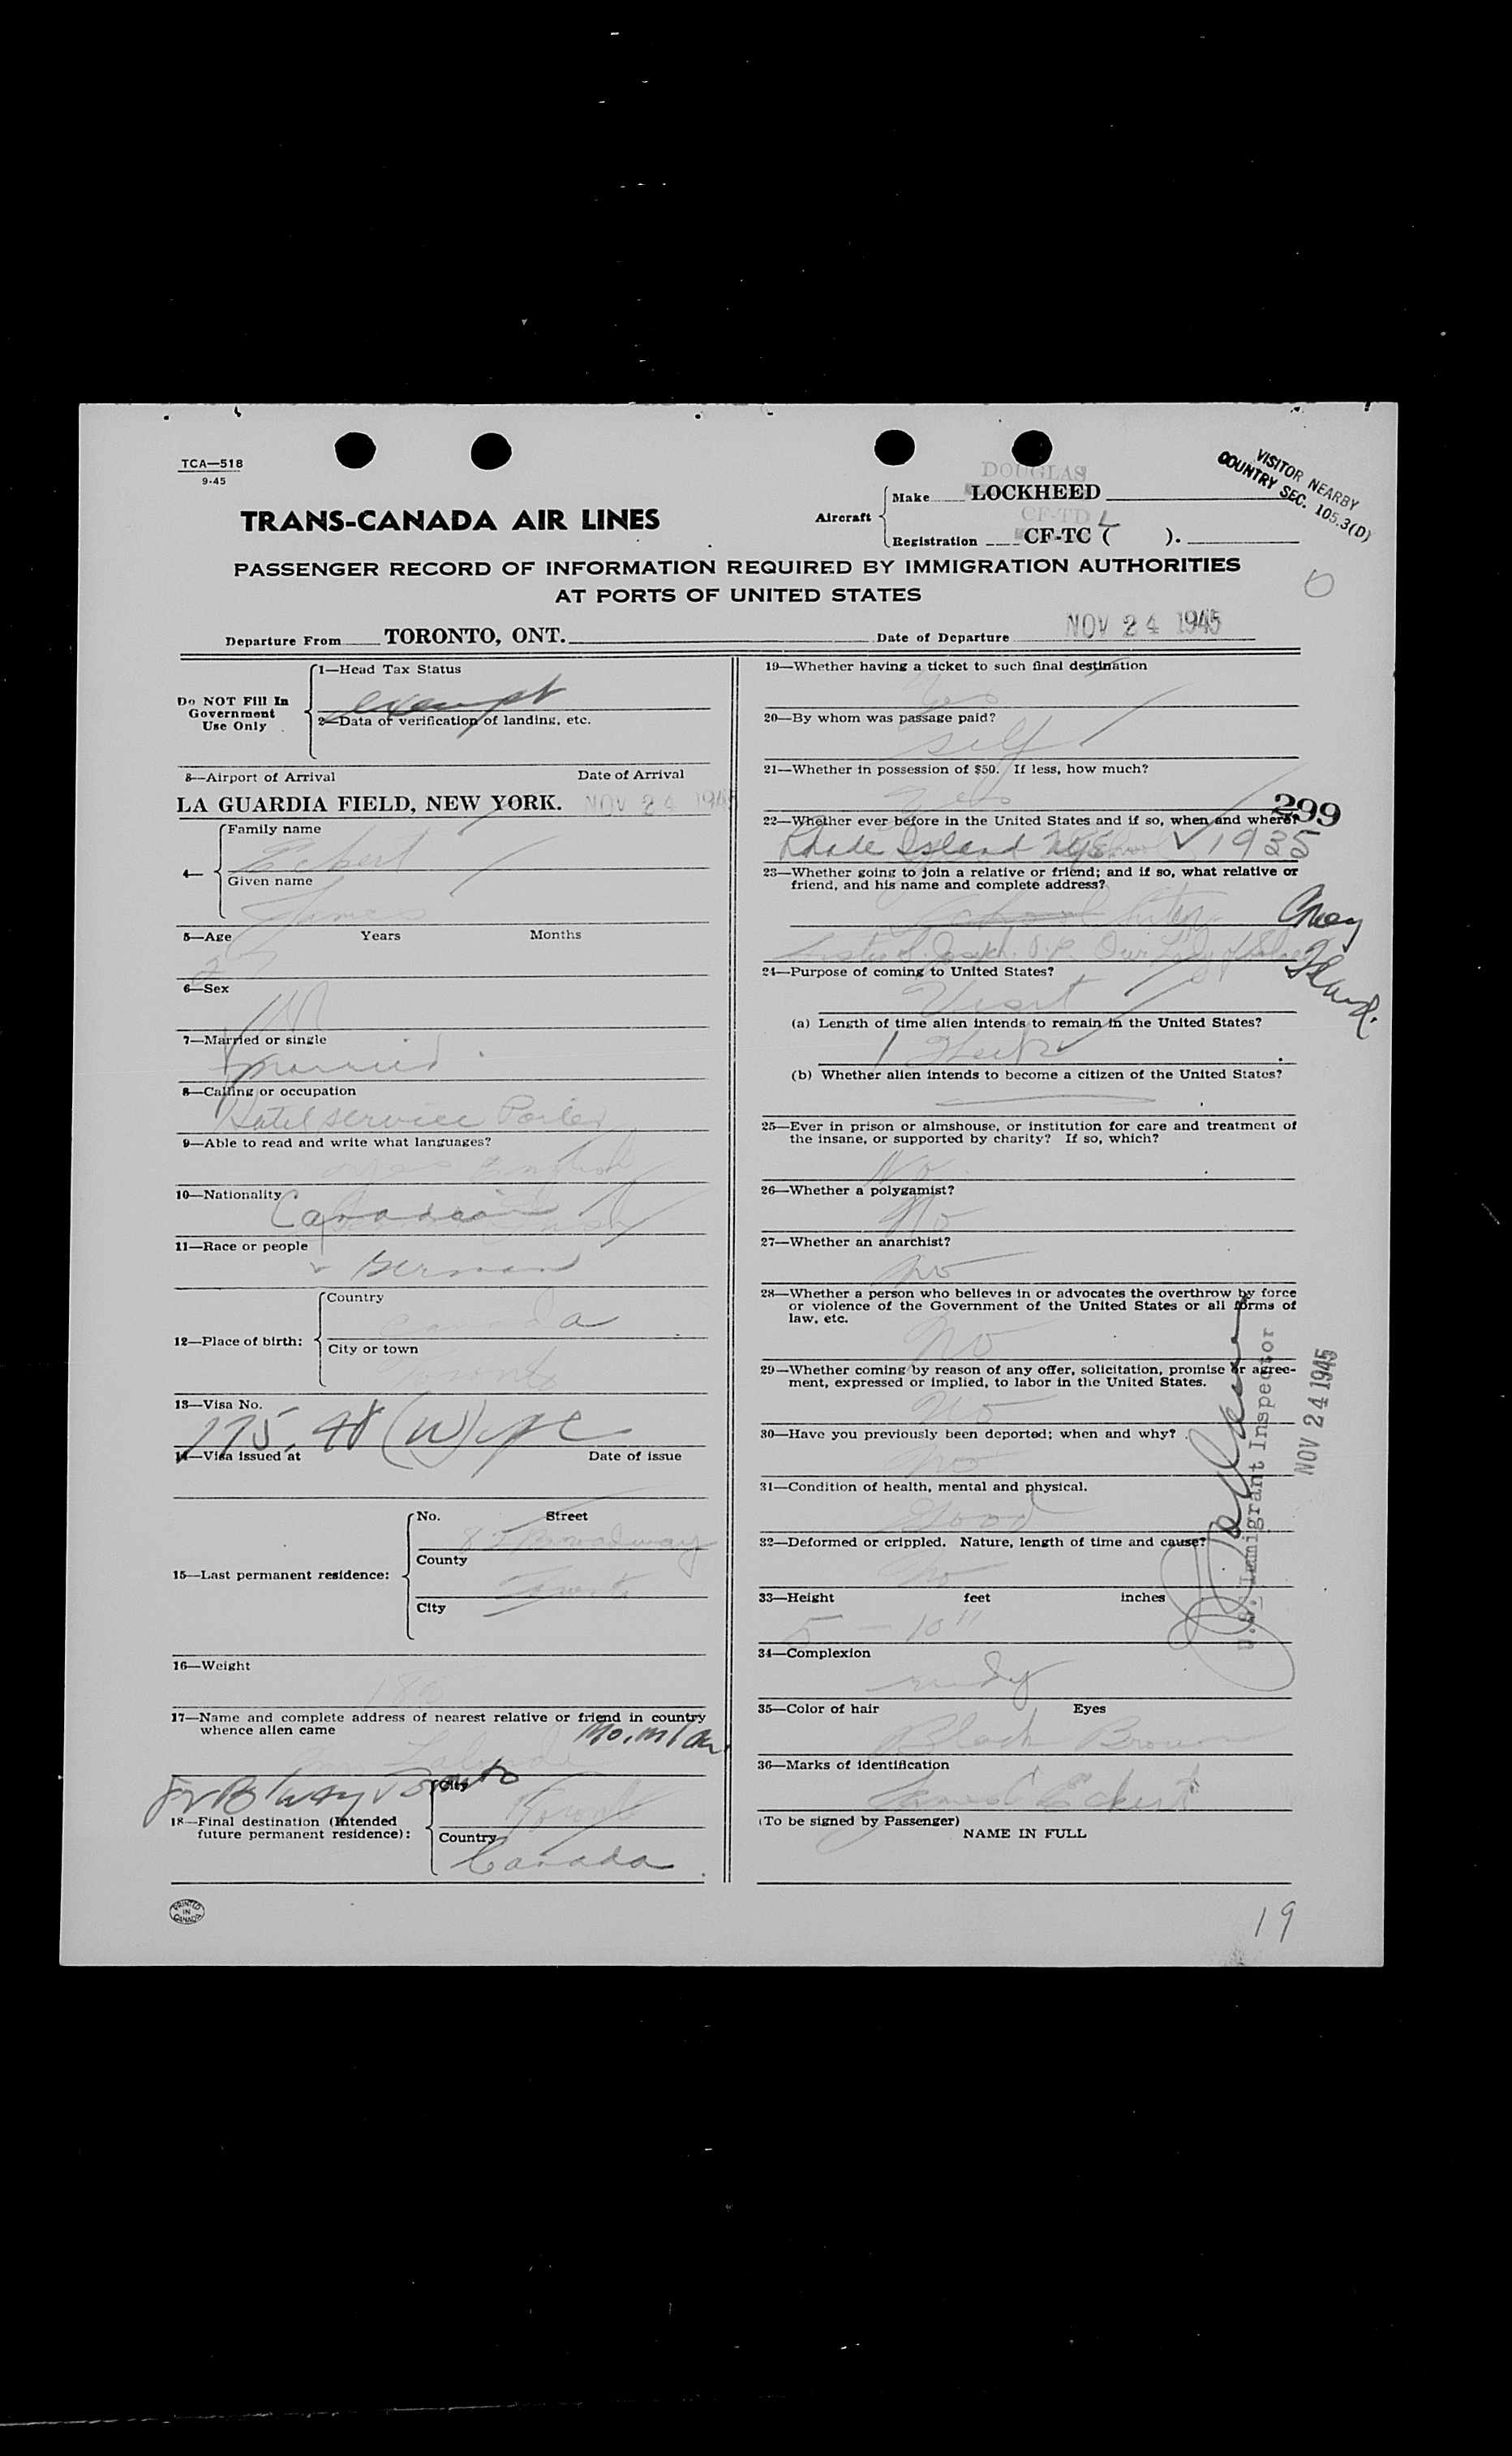 TCA—518
9-45
VISITOR NEARBY
COUNTRY SEC. 105.3(D)
DOUGLAS
Make LOCKHEED
TRANS-CANADA AIR LINES
Aircraft
CF-TD L
Registration CF-TC ( ).
PASSENGER RECORD OF INFORMATION REQUIRED BY IMMIGRATION AUTHORITIES
AT PORTS OF UNITED STATES
0
Departure From TORONTO, ONT. Date of Departure NOV 24 1945
Do NOT Fill In
Government
Use Only
1—Head Tax Status
exempt
2—Data of verification of landing, etc.
3—Airport of Arrival Date of Arrival
LA GUARDIA FIELD, NEW YORK. NOV 24 1945
4—
Family name
Eckert
Given name
James
5—Age Years Months
27
6—Sex
M
7—Married or single
Married.
8—Calling or occupation
Hotel service Porter
9—Able to read and write what languages?
yes English
10—Nationality
Canadian
11—Race or people
German
12—Place of birth:
Country
Canada
City or town
Toronto
13—Visa No.
175.48 (W)
14—Visa issued at Date of issue
15—Last permanent residence:
No. Street
82 Broadway
County
Toronto
City
16—Weight
17—Name and complete address of nearest relative or friend in country
whence alien came
82 B'way Toronto
18—Final destination (Intended
future permanent residence):
City
Toronto
Country
Canada
PRINTED
IN
CANADA
19—Whether having a ticket to such final destination
Yes
20—By whom was passage paid?
Self
21—Whether in possession of $50. If less, how much?
Yes
299
22—Whether ever before in the United States and if so, when and where?
Rhode Island 1935
23—Whether going to join a relative or friend; and if so, what relative or
friend, and his name and complete address?
Sister
Joseph. Our Lady of
Island.
24—Purpose of coming to United States?
Visit
(a) Length of time alien intends to remain in the United States?
1 Week
(b) Whether alien intends to become a citizen of the United States?
25—Ever in prison or almshouse, or institution for care and treatment of
the insane, or supported by charity? If so, which?
No
26—Whether a polygamist?
No
27—Whether an anarchist?
No
28—Whether a person who believes in or advocates the overthrow by force
or violence of the Government of the United States or all forms of
law, etc.
No
29—Whether coming by reason of any offer, solicitation, promise or agree-
ment, expressed or implied, to labor in the United States.
No
30—Have you previously been deported; when and why?
No
31—Condition of health, mental and physical.
Good
32—Deformed or crippled. Nature, length of time and cause?
No
33—Height feet inches
5 — 10"
34—Complexion
rudy
35—Color of hair Eyes
Black Brown
36—Marks of identification
James C Eckert
(To be signed by Passenger)
NAME IN FULL
U.S. Immigrant Inspector
NOV 24 1945
19